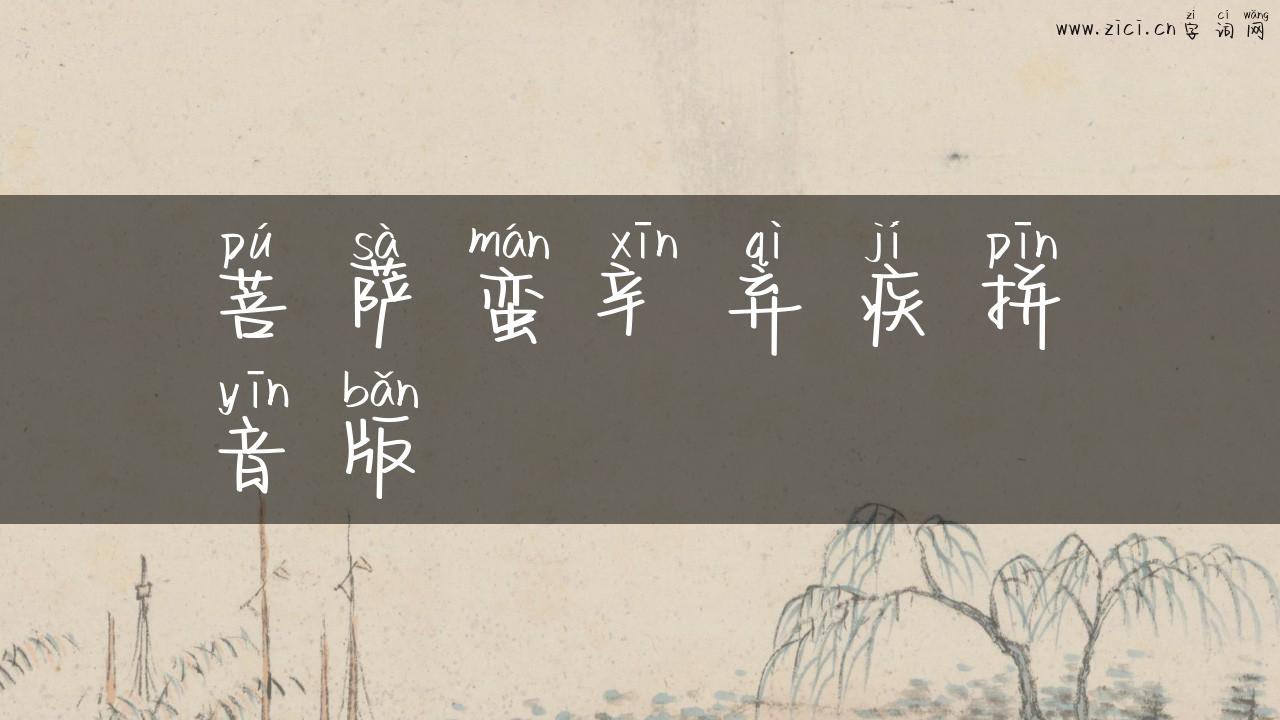 zì cí wǎng
www.zici.cn 字词网
pú sà mán xīn qì jí pīn
菩萨蛮辛弃疾拼
yīn bǎn
音版